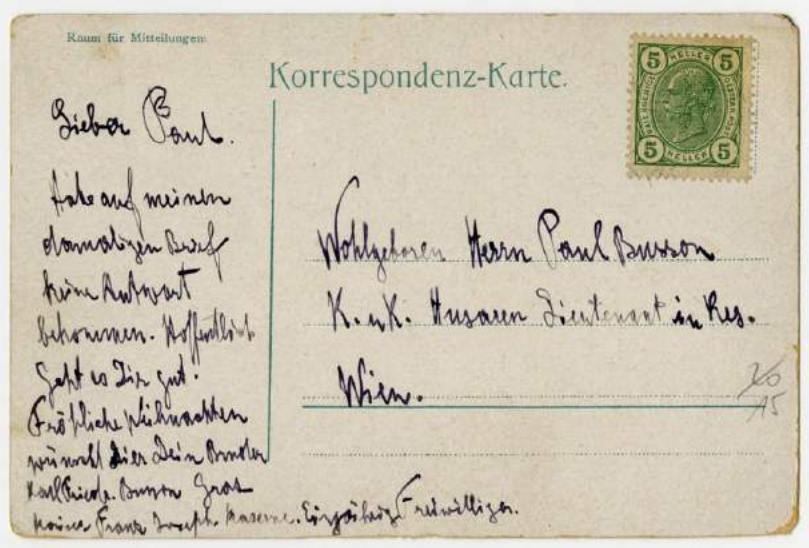 Raum für Mitteilungen.
Korrespondenz-Karte.
5 HELLER 5
5 HELLER 5
Lieber Paul.
Habe auf meinen
damaligen Brief
keine Antwort
bekommen. Hoffentlich
geht es Dir gut.
Fröhliche Weihnachten
wünscht Dir Dein Bruder
Karl Friedr. Busson Graz
Franz Joseph. Kaserne. Einjährig Freiwilliger.
Wohlgeboren Herrn Paul Busson
K. u K. Husaren Lieutenant in Res.
Wien.
15